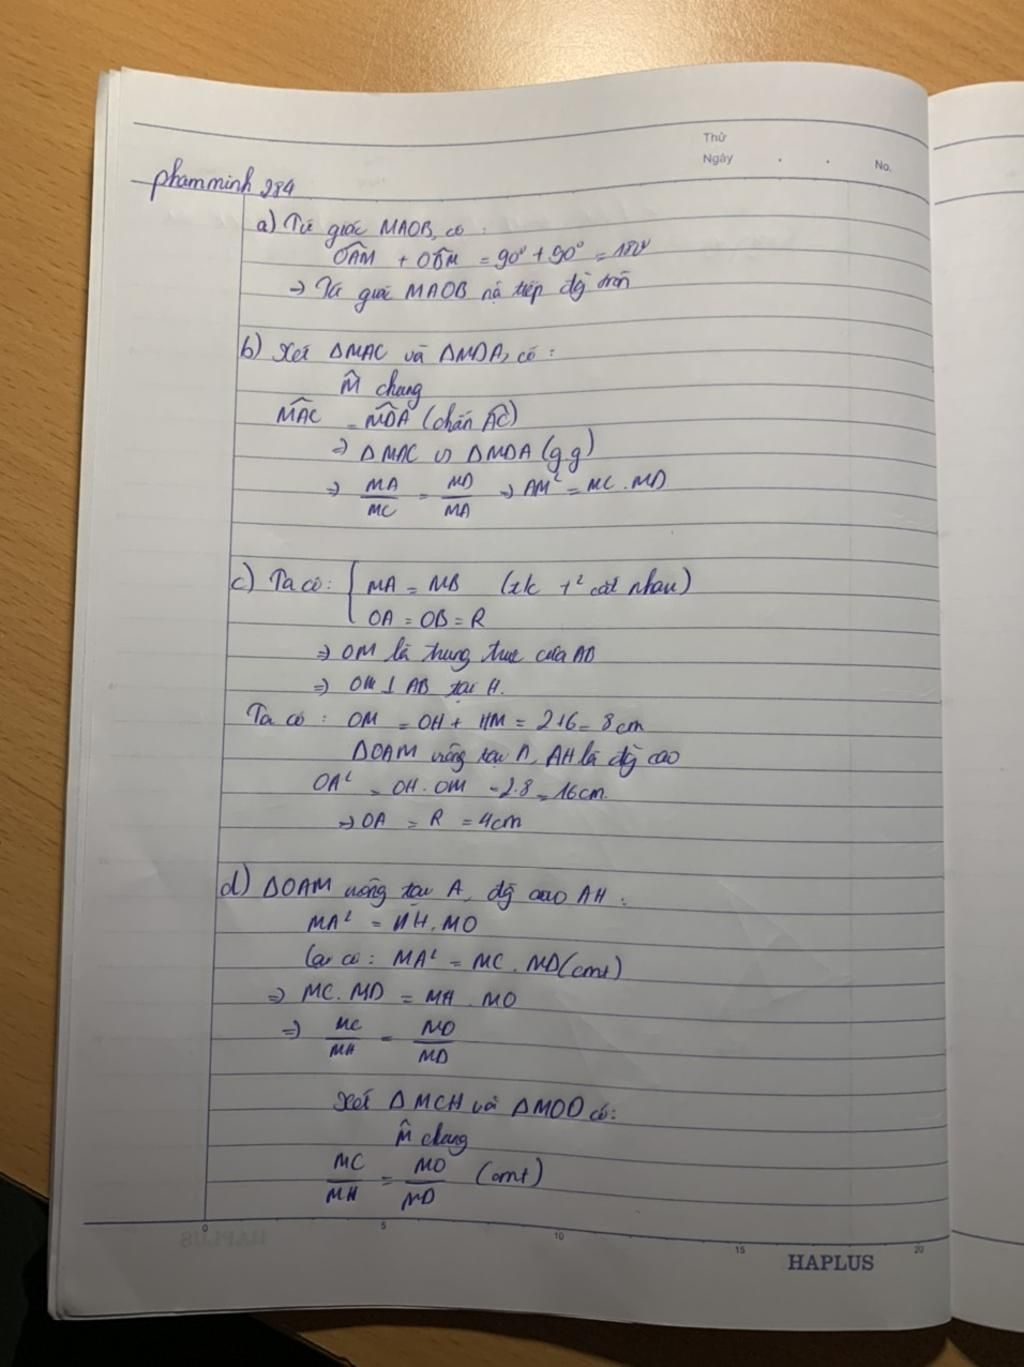 Thứ
Ngày . . No.
phamminh 284
a) Tứ giác MAOB, có :
OAM + OBM = 90° + 90° = 180°
=> Tứ giác MAOB nộ tiếp đg tròn
b) Xét ΔMAC và ΔMDA, có :
M̂ chung
MAC = MDA (chắn AC)
=> ΔMAC ∽ ΔMDA (g.g)
=> MA/MC = MD/MA => AM² = MC . MD
c) Ta có : { MA = MB (t/c t² cắt nhau)
OA = OB = R
=> OM là trung trực của AB
=> OM ⊥ AB tại H.
Ta có : OM = OH + HM = 2+6 = 8cm
ΔOAM vuông tại A, AH là đg cao
OA² = OH . OM = 2.8 = 16cm.
=> OA = R = 4cm
d) ΔOAM vuông tại A, đg cao AH :
MA² = MH . MO
Lại có : MA² = MC . MD (cmt)
=> MC . MD = MH . MO
=> MC/MH = MO/MD
Xét ΔMCH và ΔMOD có :
M̂ chung
MC/MH = MO/MD (cmt)
0 5 10 15 20
HAPLUS